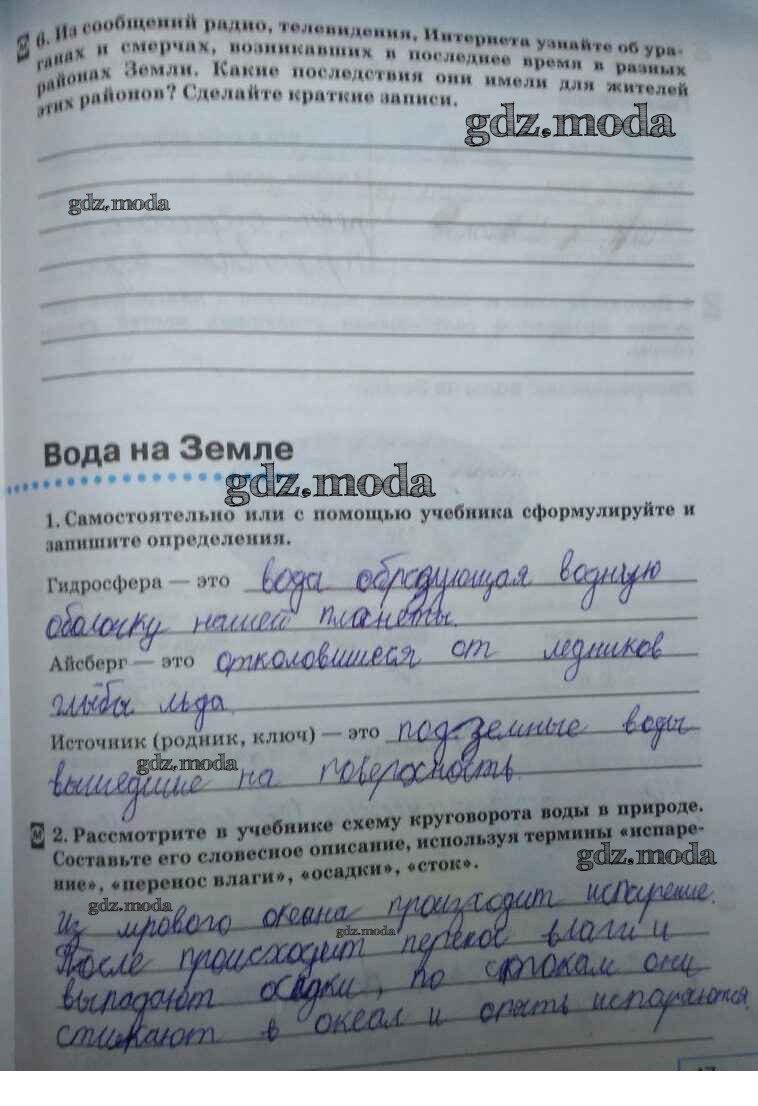 6. Из сообщений радио, телевидения, Интернета узнайте об ура-
ганах и смерчах, возникавших в последнее время в разных
районах Земли. Какие последствия они имели для жителей
этих районов? Сделайте краткие записи.
gdz.moda
gdz.moda
Вода на Земле
gdz.moda
1. Самостоятельно или с помощью учебника сформулируйте и
запишите определения.
Гидросфера — это вода образующая водную
оболочку нашей планеты.
Айсберг — это отколовшиеся от ледников
глыбы льда.
Источник (родник, ключ) — это подземные воды
gdz.moda
вышедшие на поверхность.
2. Рассмотрите в учебнике схему круговорота воды в природе.
Составьте его словесное описание, используя термины «испаре-
gdz.moda
ние», «перенос влаги», «осадки», «сток».
gdz.moda
Из мрового океана происходит испарение.
gdz.moda
После происходит перенос влаги и
выпадают осадки, по стокам они
стикают в океан и опять испараются.